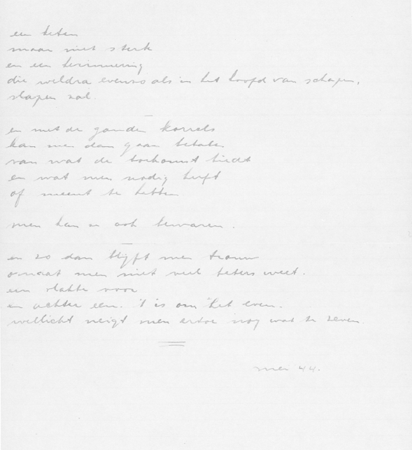 een teken
maar niet sterk
en een herinnering
die weldra evenals in het hoofd van schapen,
slapen zal.
en met de gouden korrels
kan men dan gaan betalen
van wat de toekomst biedt
en wat men nodig heeft
of meent te hebben
men kan ze ook bewaren.
en zo dan blijft men trouw
omdat men niet veel beters weet.
een vlakte voor
en achter een. 't is om 't even.
wellicht neigt men ertoe nog wat te leven
mei 44.